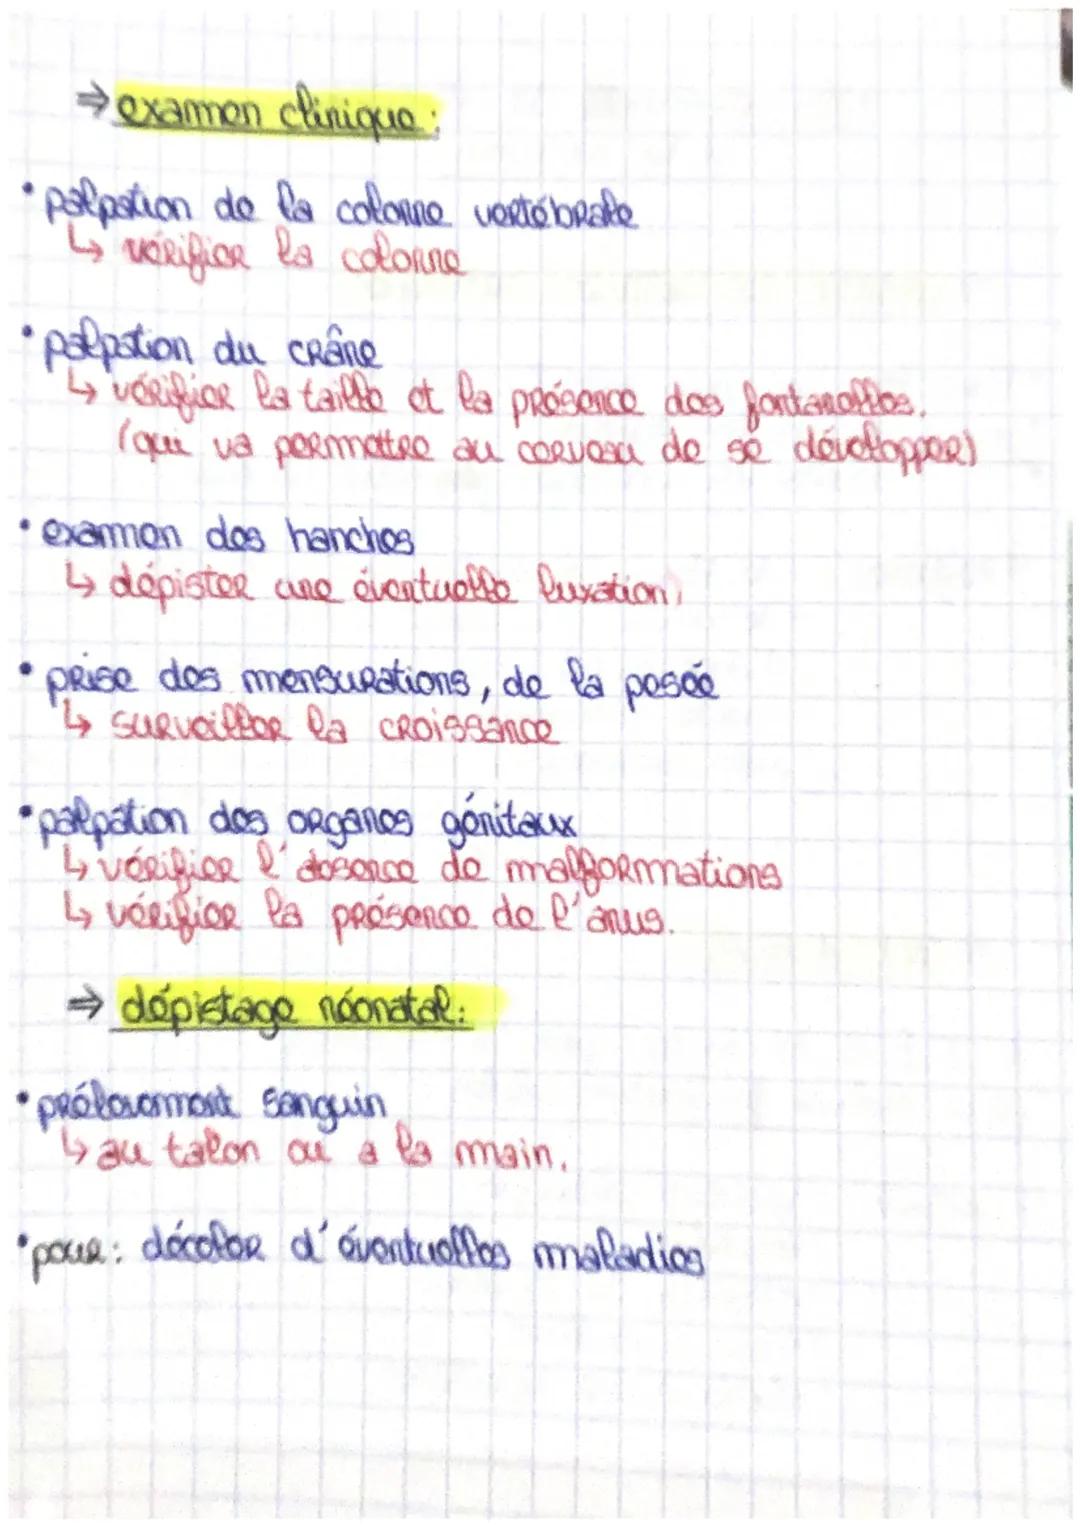 ⇒ examen clinique :
• palpation de la colonne vertébrale
↳ vérifier la colonne
• palpation du crâne
↳ vérifier la taille et la présence des fontanelles.
(qui va permettre au cerveau de se développer)
• examen des hanches
↳ dépister une éventuelle luxation
• prise des mensurations, de la pesée
↳ surveiller la croissance
• palpation des organes génitaux
↳ vérifier l'absence de malformations
↳ vérifier la présence de l'anus.
⇒ dépistage néonatal :
• prélèvement sanguin
↳ au talon ou a la main.
• pour : déceler d'éventuelles maladies